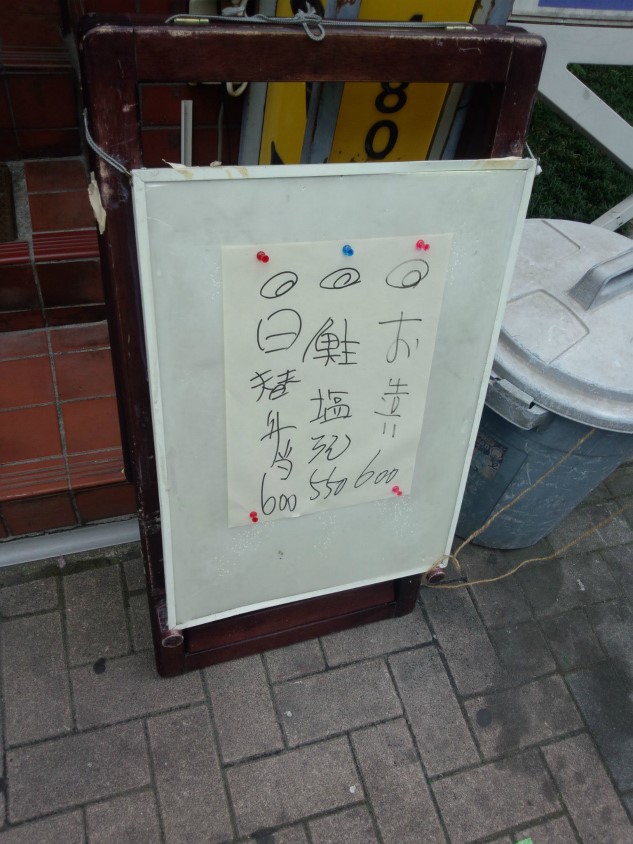 ◎お造り 600
◎鮭塩 550
◎日替弁当 600
80